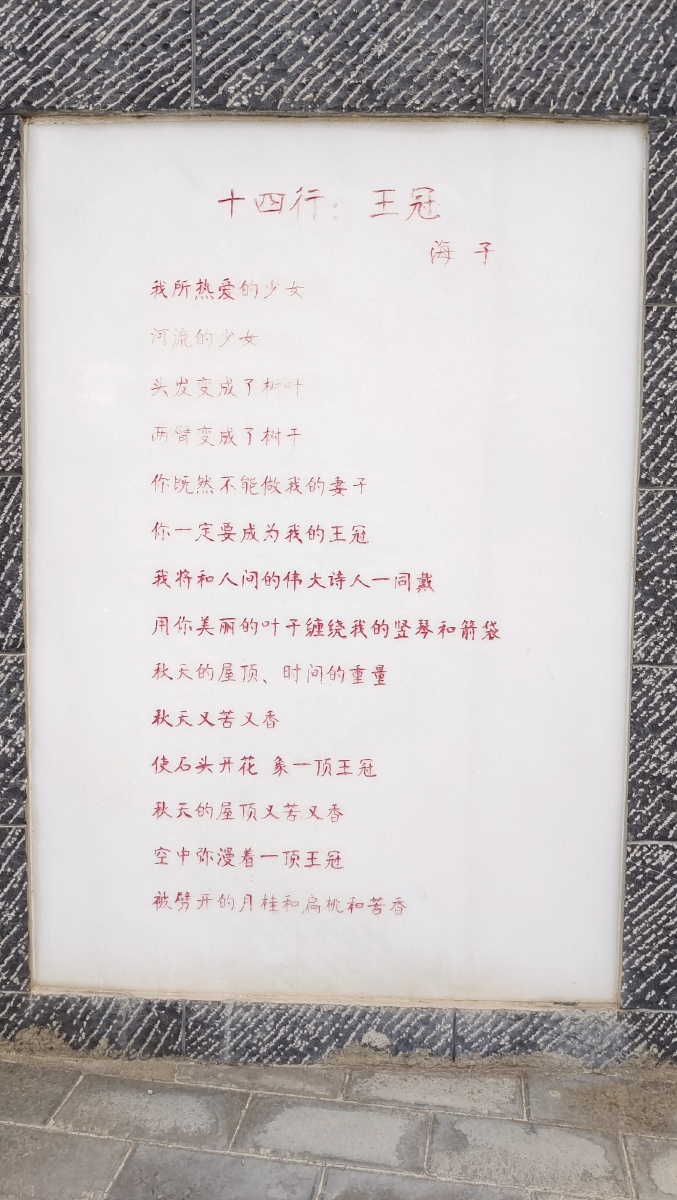 十四行：王冠
海子
我所热爱的少女
河流的少女
头发变成了树叶
两臂变成了树干
你既然不能做我的妻子
你一定要成为我的王冠
我将和人间的伟大诗人一同戴
用你美丽的叶子缠绕我的竖琴和箭袋
秋天的屋顶、时间的重量
秋天又苦又香
使石头开花 象一顶王冠
秋天的屋顶又苦又香
空中弥漫着一顶王冠
被劈开的月桂和扁桃和苦香